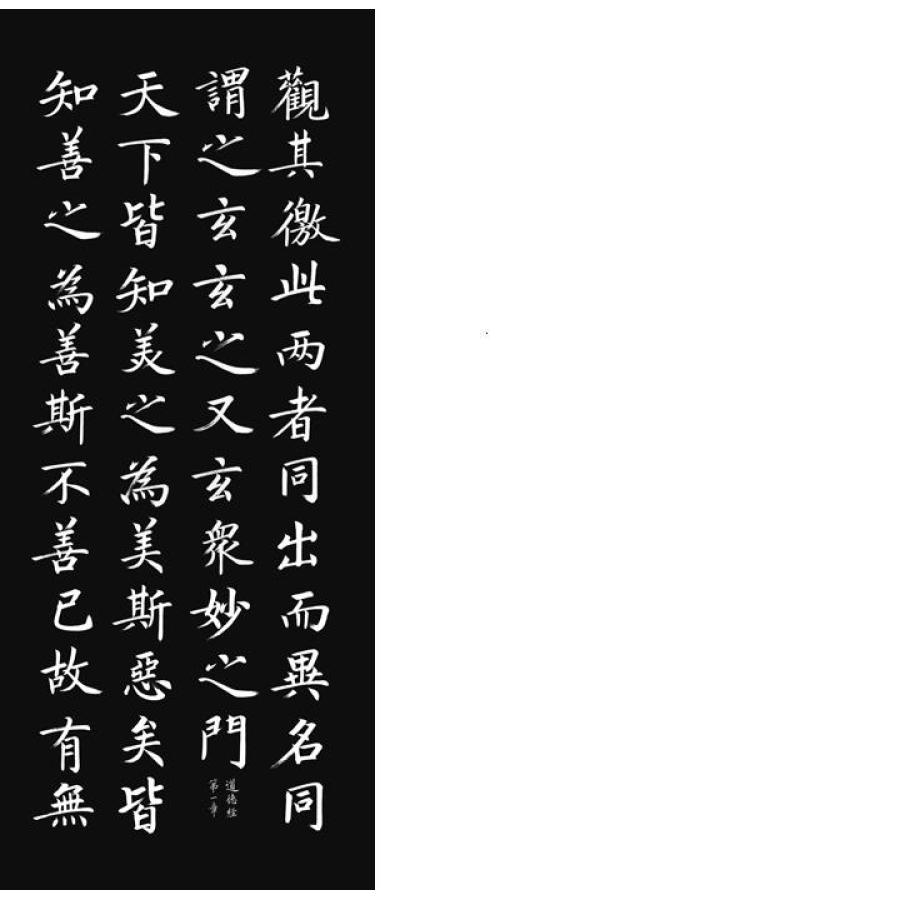 觀其徼此两者同出而異名同
謂之玄玄之又玄衆妙之門
道德經
第一章
天下皆知美之為美斯惡矣皆
知善之為善斯不善已故有無